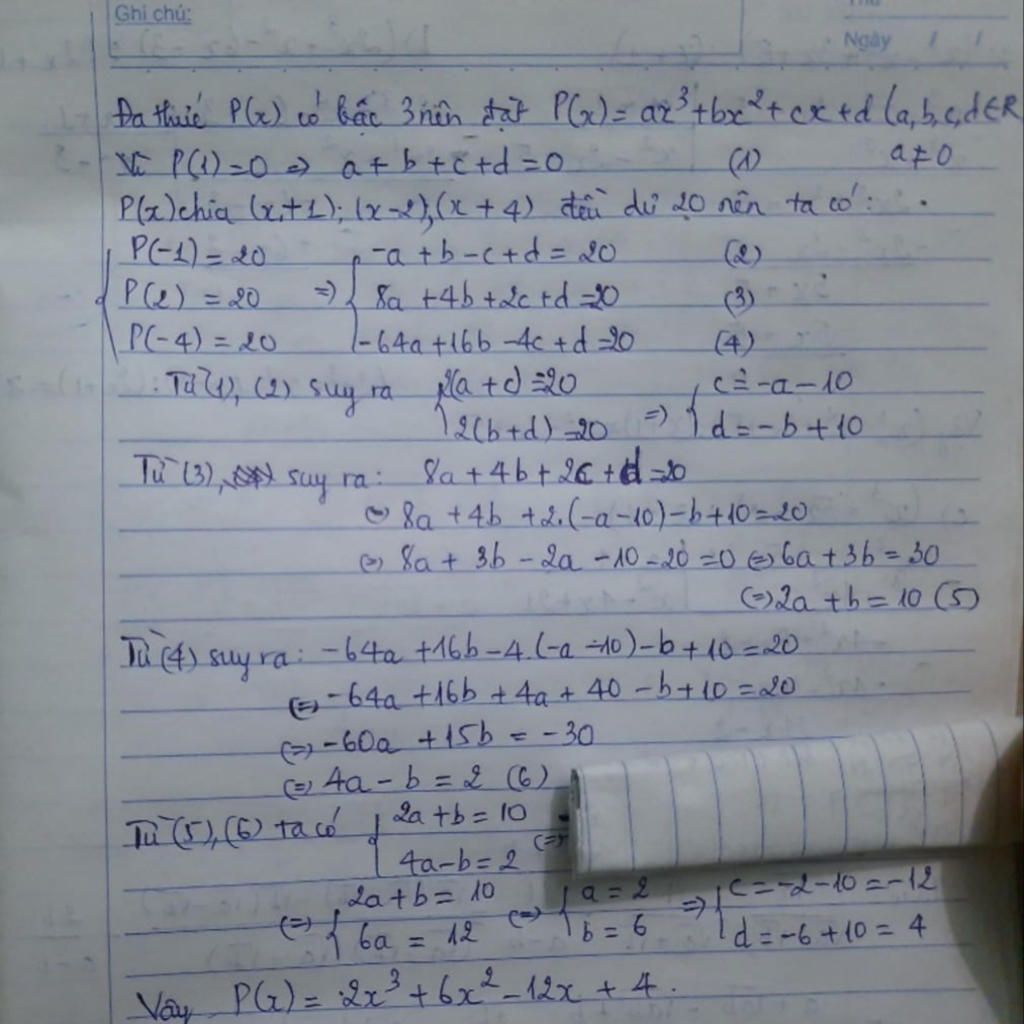 Ghi chú:
Ngày / /
Đa thức P(x) có bậc 3 nên đặt P(x) = ax³ + bx² + cx + d (a, b, c, d ∈ R
Vì P(1) = 0 => a + b + c + d = 0 (1) a ≠ 0
P(x) chia (x+1); (x-2); (x+4) đều dư 20 nên ta có:
P(-1) = 20 -a + b - c + d = 20 (2)
P(2) = 20 => 8a + 4b + 2c + d = 20 (3)
P(-4) = 20 -64a + 16b - 4c + d = 20 (4)
: Từ (1), (2) suy ra 2(a + c) = 20 => c = -a - 10
2(b + d) = 20 d = -b + 10
Từ (3), suy ra: 8a + 4b + 2c + d = 20
(=) 8a + 4b + 2.(-a-10) - b + 10 = 20
(=) 8a + 3b - 2a - 10 - 20 = 0 (=) 6a + 3b = 30
(=) 2a + b = 10 (5)
Từ (4) suy ra: -64a + 16b - 4.(-a-10) - b + 10 = 20
(=) -64a + 16b + 4a + 40 - b + 10 = 20
(=) -60a + 15b = -30
(=) 4a - b = 2 (6)
Từ (5), (6) ta có 2a + b = 10
4a - b = 2 (=)
(=) 2a + b = 10 (=) a = 2 => c = -2 - 10 = -12
6a = 12 b = 6 d = -6 + 10 = 4
Vậy P(x) = 2x³ + 6x² - 12x + 4.